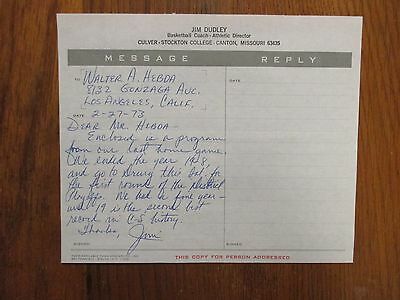 JIM DUDLEY
Basketball Coach - Athletic Director
CULVER-STOCKTON COLLEGE - CANTON, MISSOURI 63435
MESSAGE REPLY
TO
WALTER A. HEBDA
8132 GONZAGA AVE.
LOS ANGELES, CALIF.
DATE
DATE 2-27-73
DEAR MR. HEBDA-
Enclosed is a program
from our last home game.
We ended the year 19-8,
and go to Drury this Sat. for
the first round of the District
Playoffs. We had a fine year-
and 19 is the second best
record in C-S history.
Thanks, Jim
SIGNED
SIGNED
THIS COPY FOR PERSON ADDRESSED